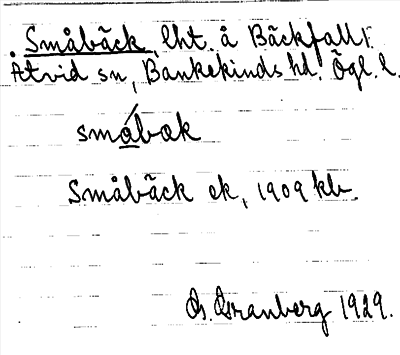 Småbäck, lht. å Bäckfall,
Åtvid sn, Bankekinds hd. Ögl. l.
småbæk
Småbäck ek, 1909 kb.
G. Granberg 1929.